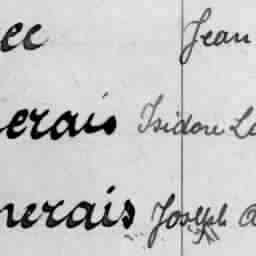 ec Jean
erais Isidore Lo
nerais Joseph a